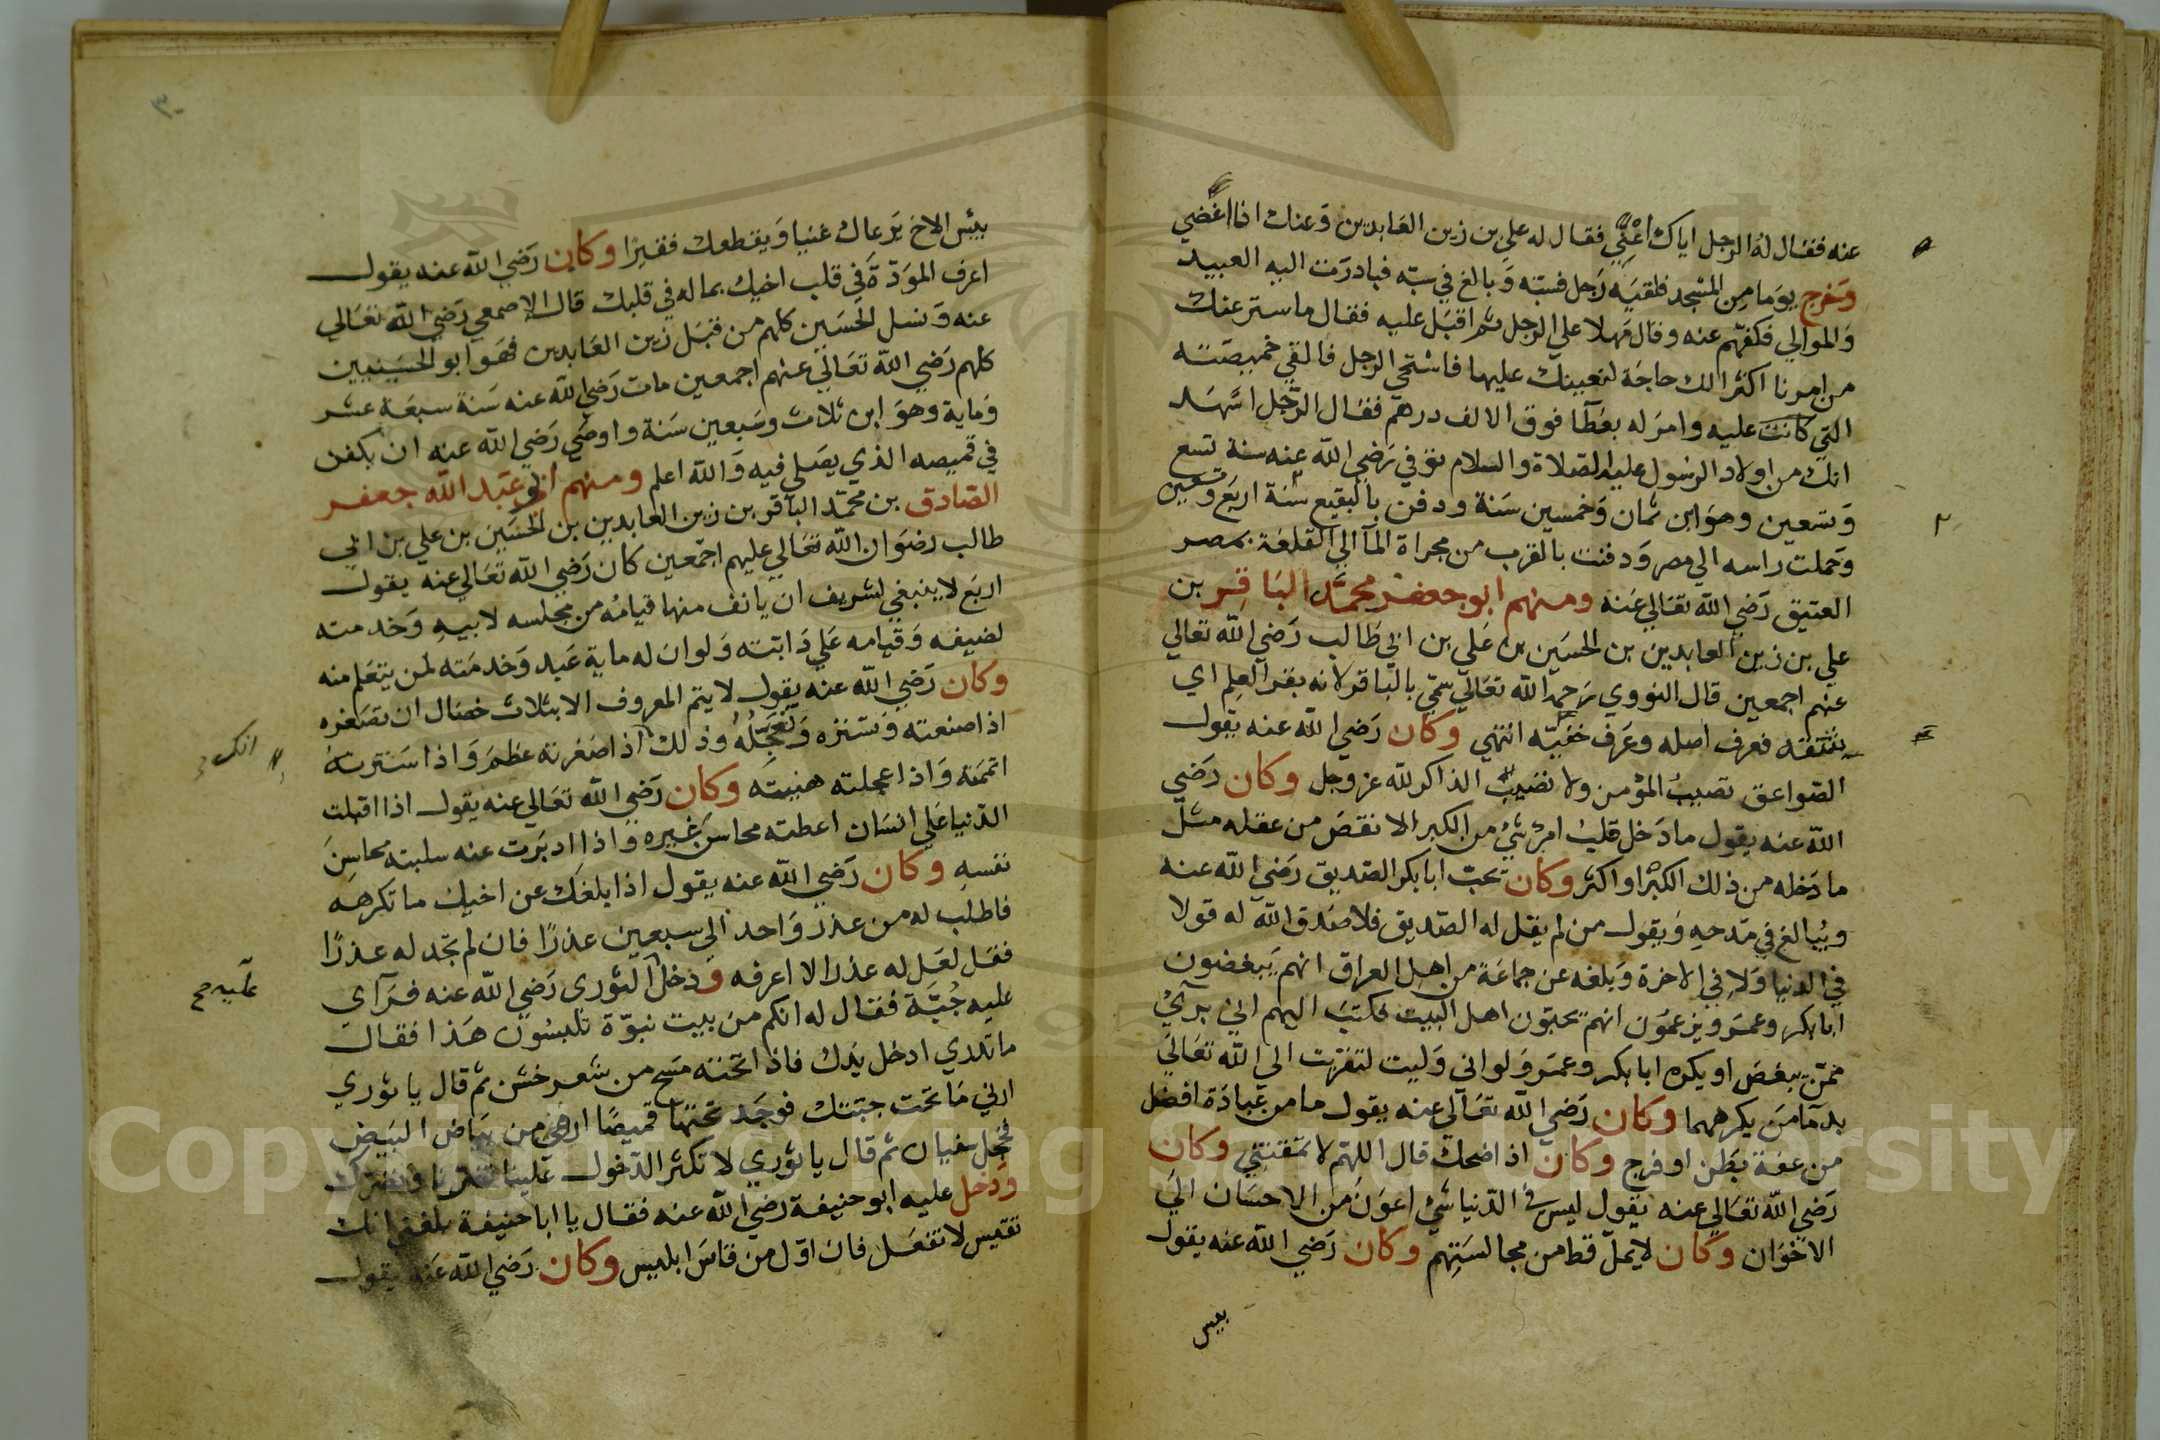 عنه فقال له الرجل اياك اعني فقال له علي بن زين العابدين وعنك انا اغضي
وخرج يوما من المسجد فلقيه رجل فسبه وبالغ في سبه فبادرت اليه العبيد
والموالي فكفهم عنه وقال مهلا علي الرجل ثم اقبل عليه فقال ما ستر عنك
من امرنا اكثر الك حاجة نعينك عليها فاستحي الرجل فالقي خميصته
التي كانت عليه وامر له بعطا فوق الالف درهم فقال الرجل اشهد
انك من اولاد الرسول عليه الصلاة والسلام توفي رضي الله عنه سنة تسع
وتسعين وهو ابن ثمان وخمسين سنة ودفن بالبقيع سنة اربع وتسعين
وحملت راسه الي مصر ودفنت بالقرب من مجراة المآ الي القلعة بمصر
العتيق رضي الله تعالي عنه ومنهم ابو جعفر محمد الباقر بن
علي بن زين العابدين بن الحسين بن علي بن ابي طالب رضي الله تعالي
عنهم اجمعين قال النووي رحمه الله تعالي سمي بالباقر لانه بقر العلم اي
شقه فعرف اصله وعرف خفيه انتهي وكان رضي الله عنه يقول
الصواعق تصيب المؤمن ولا تصيب الذاكر لله عز وجل وكان رضي
الله عنه يقول ما دخل قلب امرئ شئ من الكبر الا نقص من عقله مثل
ما دخله من ذلك الكبر او اكثر وكان يحب ابا بكر الصديق رضي الله عنه
ويبالغ في مدحه ويقول من لم يقل له الصديق فلا صدق الله له قولا
في الدنيا ولا في الاخرة وبلغه عن جماعة من اهل العراق انهم يبغضون
ابا بكر وعمر ويزعمون انهم يحبون اهل البيت فكتب اليهم اني بريئ
ممن يبغض او يكره ابا بكر وعمر ولو اني وليت لتقربت الي الله تعالي
بدمآ من يكرههما وكان رضي الله تعالي عنه يقول ما من عبادة افضل
من عفة بطن او فرج وكان اذا ضحك قال اللهم لا تمقتني وكان
رضي الله تعالي عنه يقول ليس في الدنيا شئ اعون من الاحسان الي
الاخوان وكان لا يمل قط من مجالستهم وكان رضي الله عنه يقول
بيس
٣٠
بيئس الاخ يرعاك غنيا ويقطعك فقيرا وكان رضي الله عنه يقول
اعرف المودة في قلب اخيك بما له في قلبك قال الاصمعي رضي الله تعالي
عنه ونسل الحسين كلهم من قبل زين العابدين فهو ابو الحسينيين
كلهم رضي الله تعالي عنهم اجمعين مات رضي الله عنه سنة سبعة عشر
وماية وهو ابن ثلاث وسبعين سنة واوصي رضي الله عنه ان يكفن
في قميصه الذي يصلي فيه والله اعلم ومنهم ابو عبد الله جعفر
الصادق بن محمد الباقر بن زين العابدين بن الحسين بن علي بن ابي
طالب رضوان الله تعالي عليهم اجمعين كان رضي الله تعالي عنه يقول
اربع لا ينبغي لشريف ان يانف منها قيامه من مجلسه لابيه وخدمته
لضيفه وقيامه علي دابته ولو ان له ماية عبد وخدمته لمن يتعلم منه
وكان رضي الله عنه يقول لا يتم المعروف الا بثلاث خصال ان تصغره
اذا صنعته وتستره وتعجله وذلك اذا صغرته عظم واذا سترته
اتممته واذا عجلته هنيته وكان رضي الله تعالي عنه يقول اذا اقبلت
الدنيا علي انسان اعطته محاسن غيره واذا ادبرت عنه سلبته محاسن
نفسه وكان رضي الله عنه يقول اذا بلغك عن اخيك ما تكرهه
فاطلب له من عذر واحد الي سبعين عذرا فان لم تجد له عذرا
فقل لعل له عذرا لا اعرفه ودخل الثوري رضي الله عنه فرآي
عليه جبة فقال له انكم من بيت نبوة تلبسون هذا فقال
ما تدري ادخل يدك فاذا تحته مسح من شعر خشن ثم قال يا ثوري
ارني ما تحت جبتك فوجد تحتها قميصا ارق من بياض البيض
فخجل سفيان ثم قال يا ثوري لا تكثر الدخول علينا تضرنا ونضرك
ودخل عليه ابو حنيفة رضي الله عنه فقال يا ابا حنيفة بلغني انك
تقيس لا تفعل فان اول من قاس ابليس وكان رضي الله عنه يقول
انك
عليه صح
Copyright © King Saud University